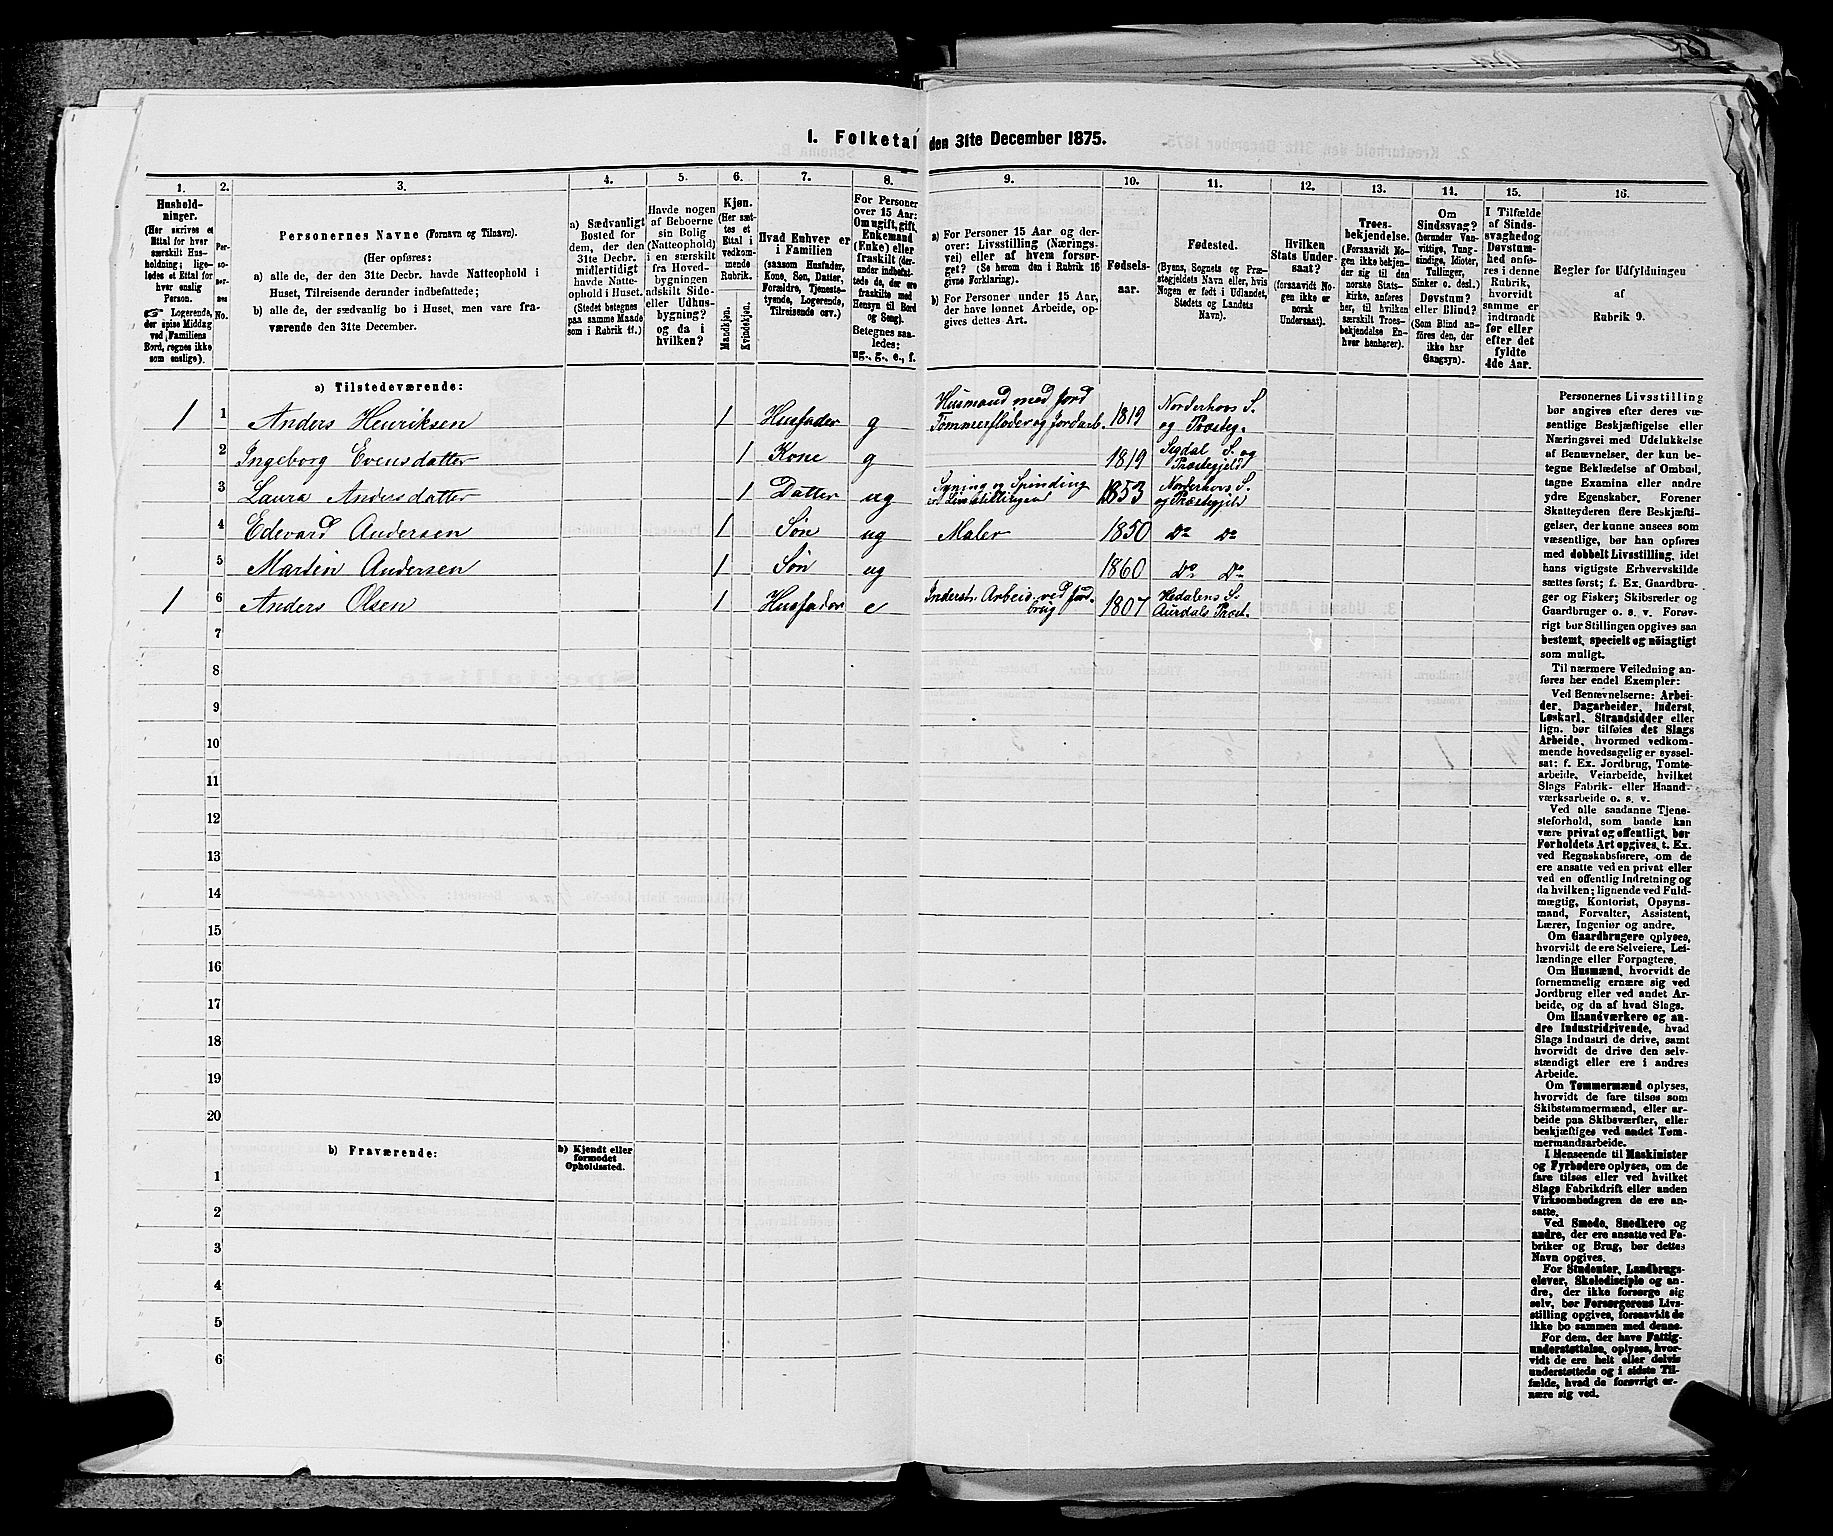 1. Folketal den 31te December 1875.
1.
2.
3.
4.
5.
6.
7.
8.
9.
10.
11.
12.
13.
14.
15.
16.
Hushold-
ninger.
(Her skrives et
Ettal for hver
særskilt Hus-
holdning; lige-
ledes et Ettal for
hver enslig
Person.
Logerende,
der spise Middag
ved Familiens
Bord, regnes ikke
som enslige).
Per-
so-
ner-
nes
No.
Personernes Navne (Fornavn og Tilnavn).
(Her opføres:
a) alle de, der den 31te Decbr. havde Natteophold i
Huset, Tilreisende derunder indbefattede;
b) alle de, der sædvanlig bo i Huset, men vare fra-
værende den 31te December.
a) Sædvanligt
Bosted for
dem, der den
31te Decbr.
midlertidigt
havde Natte-
ophold i Huset.
(Stedet betegnes
paa samme Maade
som i Rubrik 11.)
Havde nogen
af Beboerne
sin Bolig
(Natteophold)
i en særskilt
fra Hoved-
bygningen
adskilt Side-
eller Udhus-
bygning?
og da i
hvilken?
Kjøn.
(Her sæt-
tes et
Ettal i
vedkom-
mende
Rubrik.
Mandkjøn.
Kvindekjøn.
Hvad Enhver er
i Familien
(saasom Husfader,
Kone, Søn, Datter,
Forældre, Tjeneste-
tyende, Logerende,
Tilreisende osv.)
For Personer
over 15 Aar:
Om ugift, gift,
Enkemand
(Enke) eller
fraskilt (der-
under indbefat-
tede de, der ere
fraskilte med
Hensyn til Bord
og Seng).
Betegnes saa-
ledes:
ug., g., e., f.
a) For Personer 15 Aar og der-
over: Livsstilling (Nærings-
vei) eller af hvem forsør-
get? (Se herom den i Rubrik 16
givne Forklaring).
b) For Personer under 15 Aar,
der have lønnet Arbeide, op-
gives dettes Art.
Fødsels-
aar.
Fødested.
(Byens, Sognets og Præ-
stegjeldets Navn eller, hvis
Nogen er født i Udlandet,
Stedets og Landets
Navn).
Hvilken
Stats Under-
saat?
(forsaavidt No-
gen ikke er
norsk
Undersaat).
Troes-
bekjendelse.
(Forsaavidt No-
gen ikke bekjen-
der sig til den
norske Stats-
kirke, anføres
her, til hvilken
særskilt Troes-
bekjendelse En-
hver henhører).
Om
Sindssvag?
(herunder Van-
vittige, Tung-
sindige, Idioter,
Tullinger,
Sinker o. desl.)
Døvstum?
eller Blind?
(Som Blind an-
føres den, der
ikke har
Gangsyn).
I Tilfælde
af Sinds-
svaghed og
Døvstum-
hed anfø-
res i denne
Rubrik,
hvorvidt
samme er
indtraadt
før eller
efter det
fyldte
4de Aar.
Regler for Udfyldningen
af
Rubrik 9.
a) Tilstedeværende:
1 1 Anders Henriksen 1 Husfader g Husmand med Jord
Tømmerfløder og Jordarb. 1819 Norderhovs S.
og Præsteg.
2 Ingeborg Evensdatter 1 Kone g 1819 Sigdal S. og
Præstegjeld
3 Laura Andersdatter 1 Datter ug Syning og Spinding
1853 Norderhovs S.
og Præstegjeld
4 Edevard Andersen 1 Søn ug Maler 1850 Do Do
5 Martin Andersen 1 Søn ug 1860 Do Do
1 6 Anders Olsen 1 Husfader e Inderst. Arbeid. ved Jord-
brug 1807 Hedalens S.
Aurdals Præst.
7
8
9
10
11
12
13
14
15
16
17
18
19
20
b) Fraværende:
b) Kjendt eller
formodet
Opholdssted.
1
2
3
4
5
6
Personernes Livsstilling
bør angives efter deres væ-
sentlige Beskjæftigelse eller
Næringsvei med Udelukkelse
af Benævnelser, der kun be-
tegne Beklædelse af Ombud,
tagne Examina eller andre
ydre Egenskaber. Forener
Skatteyderen flere Beskjæfti-
gelser, der kunne ansees som
væsentlige, bør han opføres
med dobbelt Livsstilling, idet
hans vigtigste Erhvervskilde
sættes først; f. Ex. Gaardbru-
ger og Fisker; Skibsreder og
Gaardbruger o. s. v. Forøv-
rigt bør Stillingen opgives saa
bestemt, specielt og nöiagtigt
som muligt.
Til nærmere Veiledning an-
føres her endel Exempler:
Ved Benævnelserne: Arbei-
der, Dagarbeider, Inderst,
Løskarl, Strandsidder eller
lign. bør tilføies det Slags
Arbeide, hvormed vedkom-
mende hovedsagelig er syssel-
sat; f. Ex. Jordbrug, Tomte-
arbeide, Veiarbeide, hvilket
Slags Fabrik- eller Haand-
værksarbeide o. s. v.
Ved alle saadanne Tjene-
steforhold, som baade kan
være privat og offentligt, bør
Forholdets Art opgives, t. Ex.
ved Regnskabsførere, om de
ere ansatte ved en privat eller
ved en offentlig Indretning og
da hvilken; lignende ved Fuld-
mægtig, Kontorist, Opsyns-
mand, Forvalter, Assistent,
Lærer, Ingeniør og andre.
Om Gaardbrugere oplyses,
hvorvidt de ere Selveiere, Lei-
lændinge eller Forpagtere.
Om Husmænd, hvorvidt de
fornemmelig ernære sig ved
Jordbrug eller ved andet Ar-
beide, og da af hvad Slags.
Om Haandværkere og an-
dre Industridrivende, hvad
Slags Industri de drive, samt
hvorvidt de drive den selv-
stændigt eller ere i andres
Arbeide.
Om Tømmermænd oplyses,
hvorvidt de fare tilsøs som
Skibstømmermænd, eller ar-
beide paa Skibsværfter, eller
beskjæftiges ved andet Tøm-
mermandsarbeide.
I Henseende til Maskinister
og Fyrbødere oplyses, om de
fare tilsøs eller ved hvilket
Slags Fabrikdrift eller anden
Virksomhedsgren de ere an-
satte.
Ved Smede, Snedkere og
andre, der ere ansatte ved Fa-
briker og Brug, bør dettes
Navn opgives.
For Studenter, Landbrugs-
elever, Skoledisciple og an-
dre, der ikke forsørge sig
selv, bør Forsørgerens Livs-
stilling opgives, forsaavidt de
ikke bo sammen med denne.
For dem, der have Fattig-
understøttelse, oplyses, hvor-
vidt de ere helt eller delvis
understøttede og i sidste Til-
fælde, hvad de forøvrigt er-
nære sig ved.